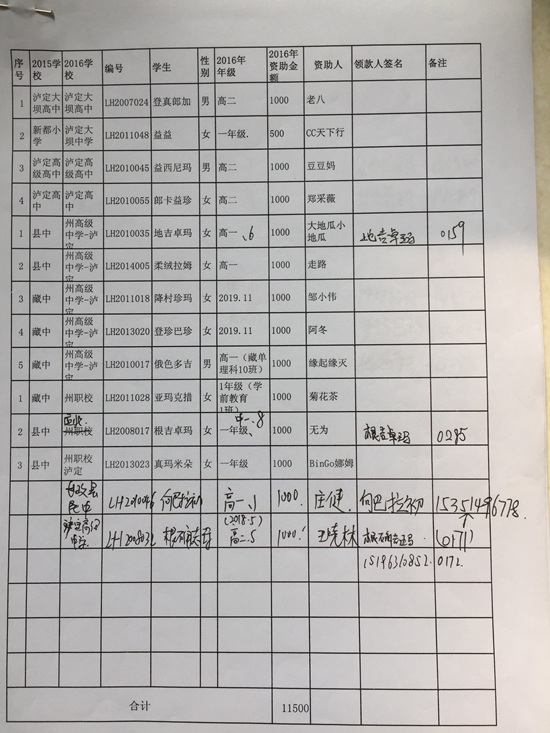 序号 2015学校 2016学校 编号 学生 性别 2016年年级 2016年资助金额 资助人 领款人签名 备注
1 泸定大坝高中 泸定大坝高中 LH2007024 登真郎加 男 高二 1000 老八
2 新都小学 泸定大坝中学 LH2011048 益益 女 一年级. 500 CC天下行
3 泸定高级高中 泸定高级高中 LH2010045 益西尼玛 男 高二 1000 豆豆妈
4 泸定高中 泸定高中 LH2010055 郎卡益珍 女 高二 1000 郑采薇
1 县中 州高级中学-泸定 LH2010035 地吉卓玛 女 高一、6 1000 大地瓜小地瓜 地吉卓玛 0159
2 县中 州高级中学-泸定 LH2014005 柔绒拉姆 女 高一 1000 走路
3 藏中 州高级中学-泸定 LH2011018 降村珍玛 女 2019.11 1000 邹小伟
4 藏中 州高级中学-泸定 LH2013020 登珍巴珍 女 2019.11 1000 阿冬
5 藏中 州高级中学-泸定 LH2010017 俄色多吉 男 高一（藏单理科10班） 1000 缘起缘灭
1 藏中 州职校 LH2011028 亚玛克措 女 1年级（学前教育1班） 1000 菊花茶
2 县中 州职校 LH2008017 根吉卓玛 女 一年级、8 1000 无为 根吉卓玛 0295
3 县中 州职校泸定 LH2013023 真玛米朵 女 一年级 1000 BinGo娜姆
LH2010046 向巴拉初 高一、1 1000. 庄健 向巴拉初 15351496778
(2018.5)
高二.5 1000. 王晓林 (0171)
15196310852. 0172.
合计 11500